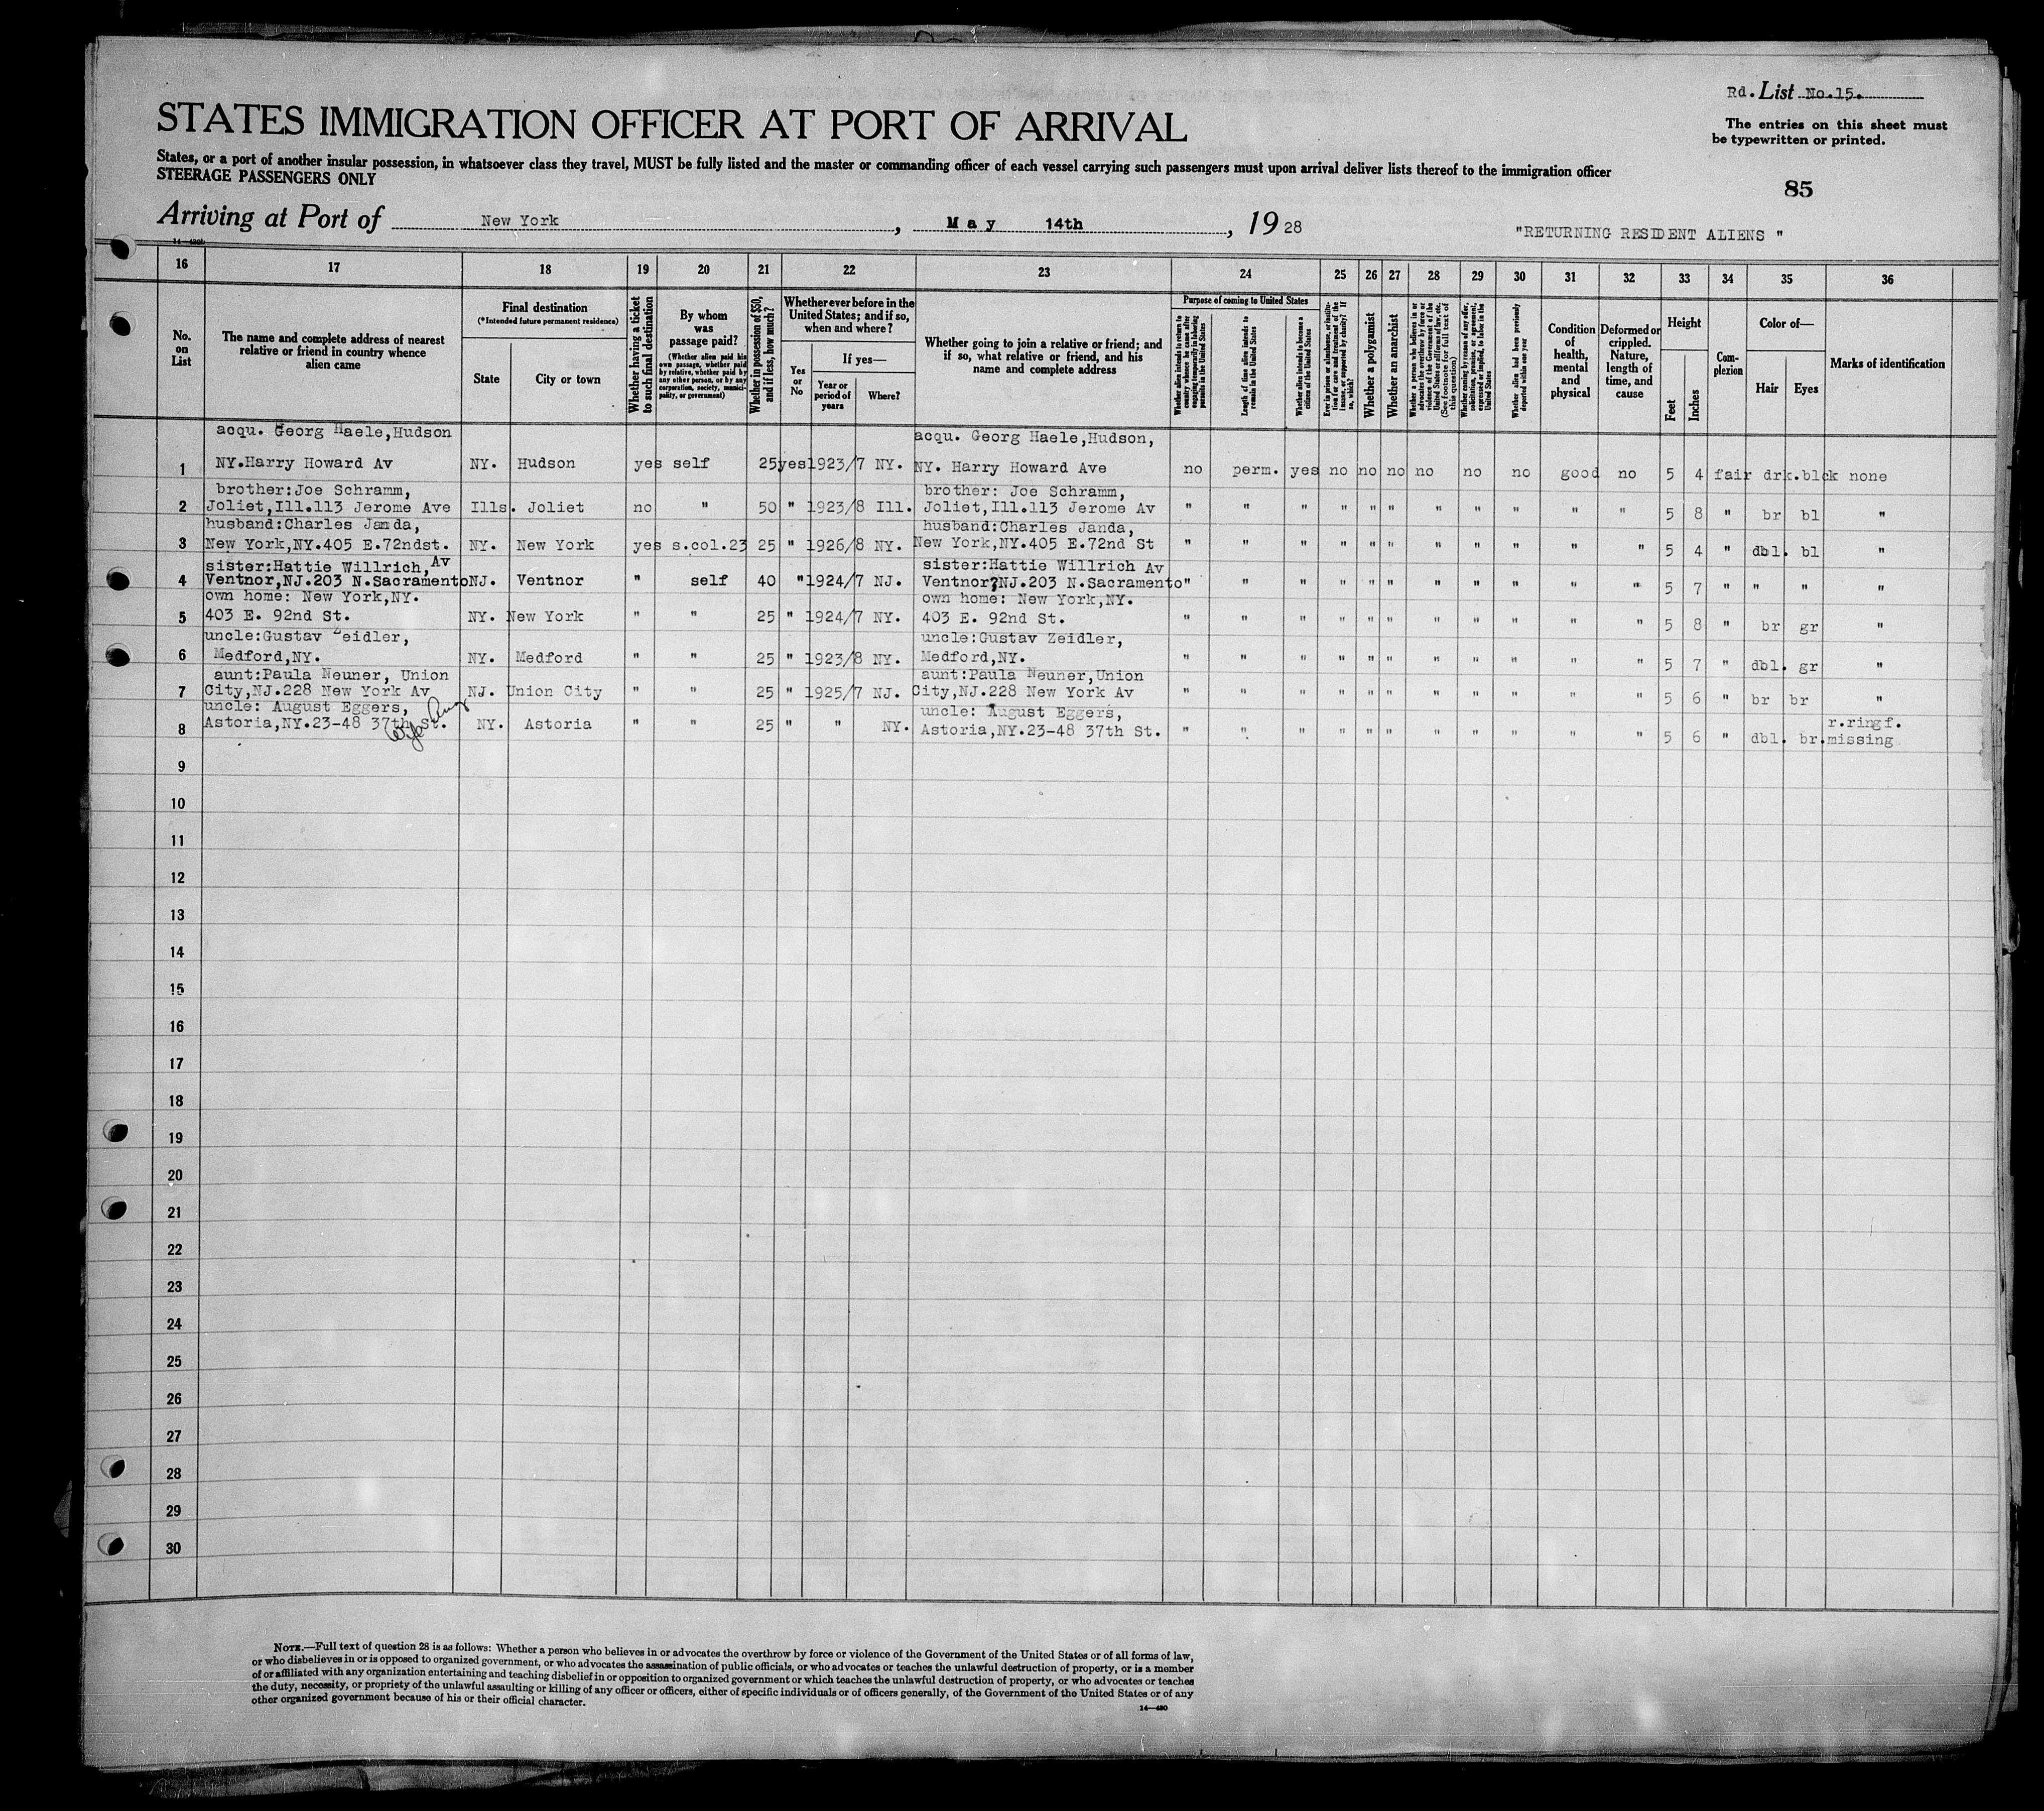 Rd. List No.15.
STATES IMMIGRATION OFFICER AT PORT OF ARRIVAL
The entries on this sheet must
be typewritten or printed.
States, or a port of another insular possession, in whatsoever class they travel, MUST be fully listed and the master or commanding officer of each vessel carrying such passengers must upon arrival deliver lists thereof to the immigration officer
STEERAGE PASSENGERS ONLY
85
Arriving at Port of New York, May 14th, 1928
"RETURNING RESIDENT ALIENS "
16 17 18 19 20 21 22 23 24 25 26 27 28 29 30 31 32 33 34 35 36
No. on List
The name and complete address of nearest relative or friend in country whence alien came
Final destination
(*Intended future permanent residence)
State
City or town
Whether having a ticket to such final destination
By whom was passage paid?
(Whether alien paid his own passage, whether paid by relative, whether paid by any other person, or by any corporation, society, municipality, or government)
Whether in possession of $50, and if less, how much?
Whether ever before in the United States; and if so, when and where?
Yes or No
If yes—
Year or period of years
Where?
Whether going to join a relative or friend; and if so, what relative or friend, and his name and complete address
Purpose of coming to United States
Whether alien intends to return to country whence he came after engaging temporarily in laboring pursuits in the United States
Length of time alien intends to remain in the United States
Whether alien intends to become a citizen of the United States
Ever in prison or almshouse, or institution for care and treatment of the insane, or supported by charity? If so, which?
Whether a polygamist
Whether an anarchist
Whether a person who believes in or advocates the overthrow by force or violence of the Government of the United States or all forms of law, etc. (See footnote for full text of this question)
Whether coming by reason of any offer, solicitation, promise, or agreement, expressed or implied, to labor in the United States
Whether alien had been previously deported within one year
Condition of health, mental and physical
Deformed or crippled. Nature, length of time, and cause
Height
Feet
Inches
Complexion
Color of—
Hair
Eyes
Marks of identification
acqu. Georg Haele,Hudson acqu. Georg Haele,Hudson,
1 NY.Harry Howard Av NY. Hudson yes self 25 yes 1923/7 NY. NY. Harry Howard Ave no perm. yes no no no no no no good no 5 4 fair drk.blck none
brother:Joe Schramm, brother: Joe Schramm,
2 Joliet,Ill.113 Jerome Ave Ills. Joliet no " 50 " 1923/8 Ill. Joliet,Ill.113 Jerome Av " " " " " " " " " " " 5 8 " br bl "
husband:Charles Janda, husband:Charles Janda,
3 New York,NY.405 E.72ndst. NY. New York yes s.col.23 25 " 1926/8 NY. New York,NY.405 E.72nd St " " " " " " " " " " " 5 4 " dbl. bl "
sister:Hattie Willrich, Av sister:Hattie Willrich Av
4 Ventnor,NJ.203 N.Sacramento NJ. Ventnor " self 40 " 1924/7 NJ. Ventnor?NJ.203 N.Sacramento " " " " " " " " " " " 5 7 " " " "
own home: New York,NY. own home: New York,NY.
5 403 E. 92nd St. NY. New York " " 25 " 1924/7 NY. 403 E. 92nd St. " " " " " " " " " " " 5 8 " br gr "
uncle:Gustav Zeidler, uncle:Gustav Zeidler,
6 Medford,NY. NY. Medford " " 25 " 1923/8 NY. Medford,NY. " " " " " " " " " " " 5 7 " dbl. gr "
aunt:Paula Neuner, Union aunt:Paula Neuner,Union
7 City,NJ.228 New York Av NJ. Union City " " 25 " 1925/7 NJ. City,NJ.228 New York Av " " " " " " " " " " " 5 6 " br br "
uncle: August Eggers, uncle: August Eggers, r.ringf.
8 Astoria,NY.23-48 37th St. NY. Astoria " " 25 " " NY. Astoria,NY.23-48 37th St. " " " " " " " " " " " 5 6 " dbl. br. missing
9
10
11
12
13
14
15
16
17
18
19
20
21
22
23
24
25
26
27
28
29
30
NOTE.—Full text of question 28 is as follows: Whether a person who believes in or advocates the overthrow by force or violence of the Government of the United States or of all forms of law,
or who disbelieves in or is opposed to organized government, or who advocates the assassination of public officials, or who advocates or teaches the unlawful destruction of property, or is a member
of or affiliated with any organization entertaining and teaching disbelief in or opposition to organized government or which teaches the unlawful destruction of property, or who advocates or teaches
the duty, necessity, or propriety of the unlawful assaulting or killing of any officer or officers, either of specific individuals or of officers generally, of the Government of the United States or of any
other organized government because of his or their official character.
14—430